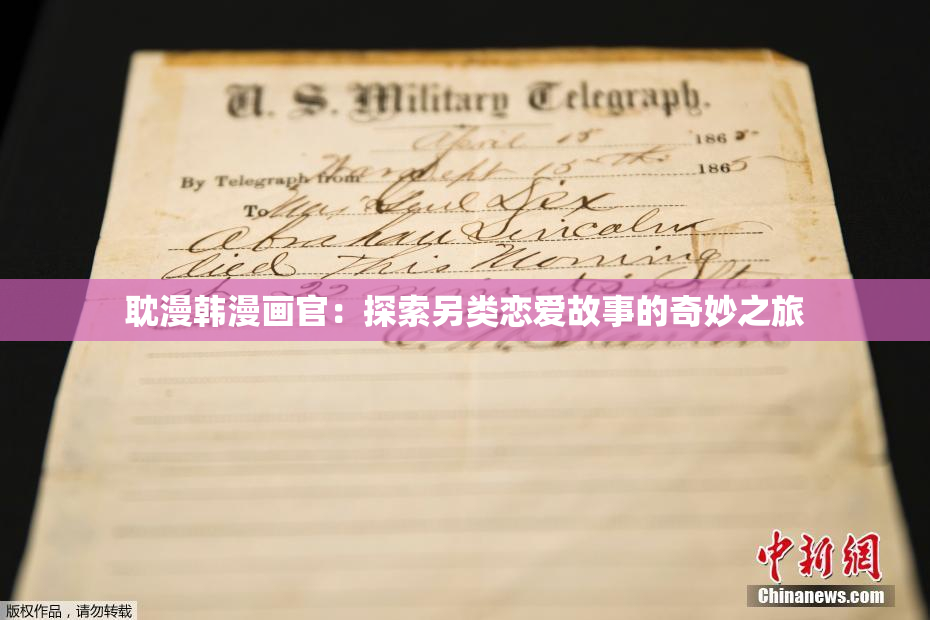 U. S. Military Telegraph.
April 15 1865
By Telegraph from War Dept 15th 1865
To Maj Genl Dix
Abraham Lincoln
died This Morning
at 22 minutes after
耽漫韩漫画官：探索另类恋爱故事的奇妙之旅
E. M. Stanton
中新网
Chinanews.com
版权作品，请勿转载